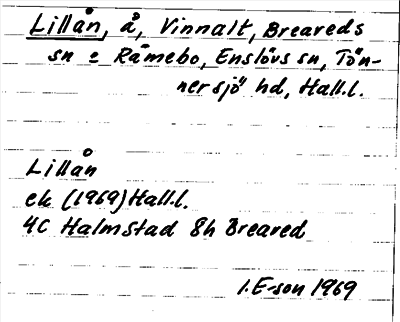 Lillån, å, Vinnalt, Breareds
sn o Råmebo, Enslövs sn, Tön-
nersjö hd, Hall.l.
Lillån
ek (1969) Hall.l.
4C Halmstad 8h Breared
I.E-son 1969